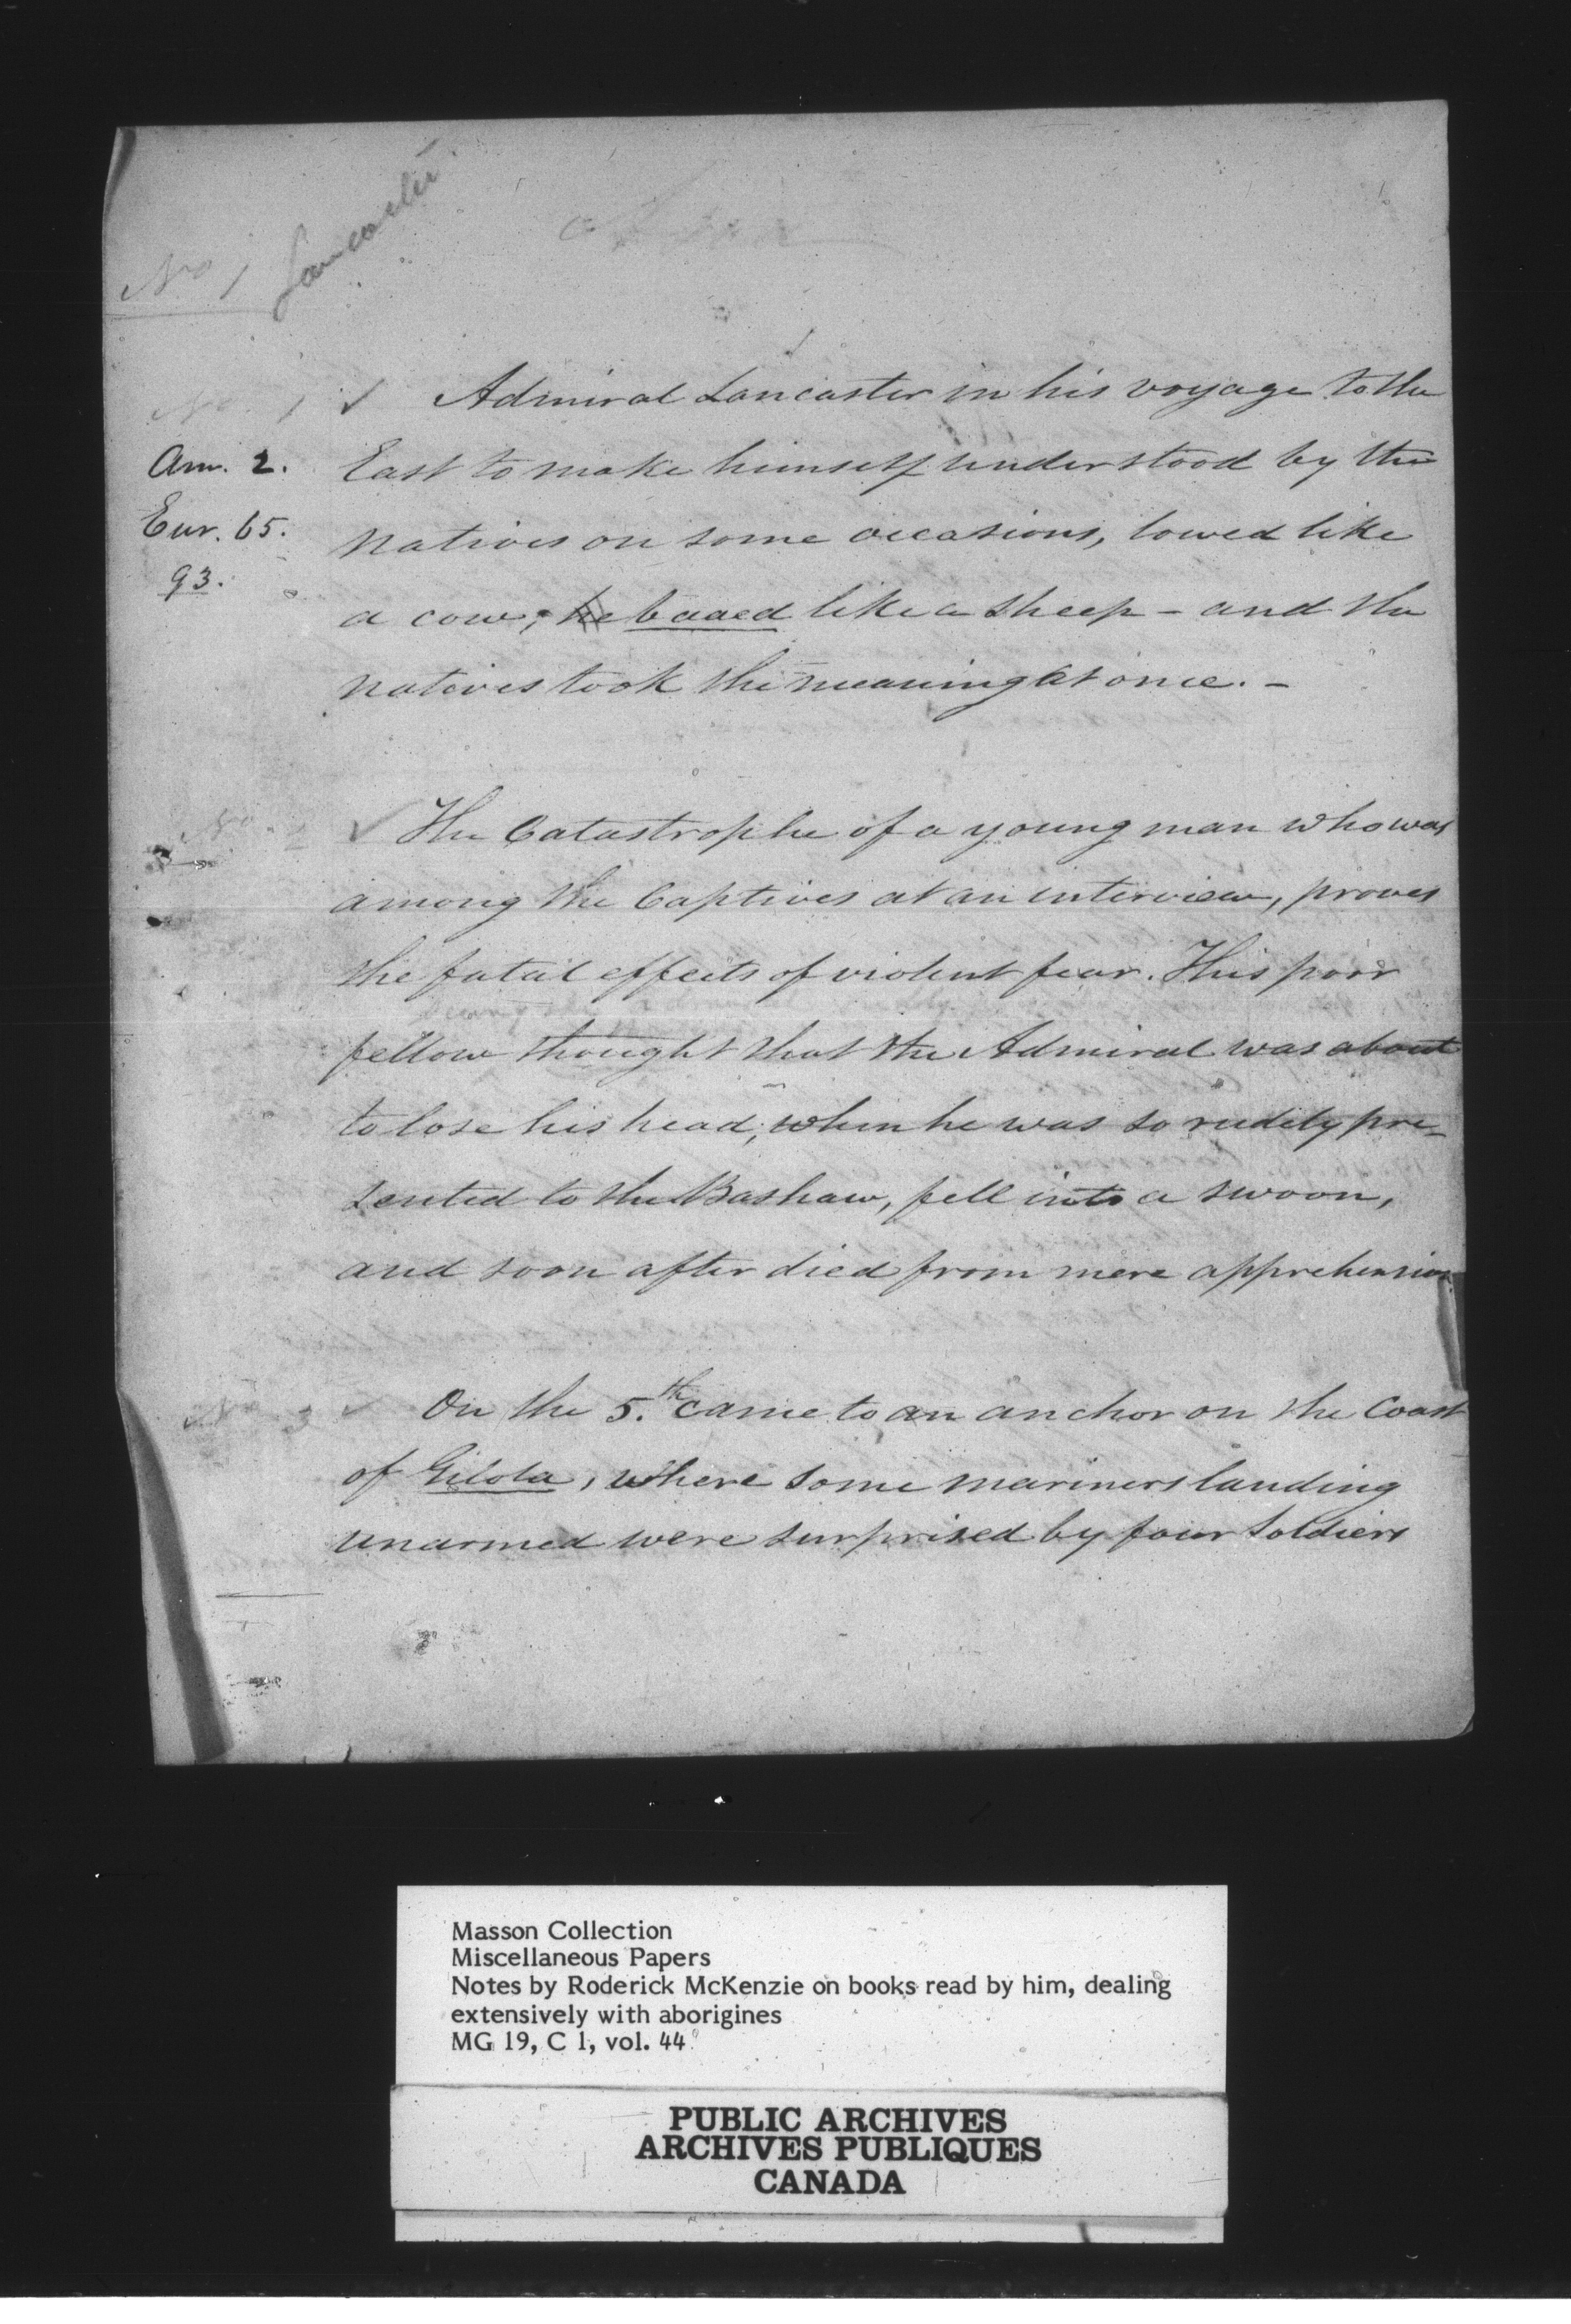 No 1
Lancaster
No. 1 ✓ Admiral Lancaster in his voyage to the
Am. 2. East to make himself understood by the
Eur. 65. natives on some occasions, lowed like
93. a cow, he baaed like a sheep - and the
natives took the meaning at once. -
No. 2 ✓ The Catastrophe of a young man who was
among the Captives at an interview, proves
the fatal effects of violent fear. This poor
fellow thought that the Admiral was about
to lose his head, when he was so rudely pre-
sented to the Bashaw, fell into a swoon,
and soon after died from mere apprehension
No. 3 ✓ On the 5.th came to an anchor on the Coast
of Gilola, where some mariners landing
unarmed were surprised by four Soldiers
Masson Collection
Miscellaneous Papers
Notes by Roderick McKenzie on books read by him, dealing
extensively with aborigines
MG 19, C 1, vol. 44
PUBLIC ARCHIVES
ARCHIVES PUBLIQUES
CANADA